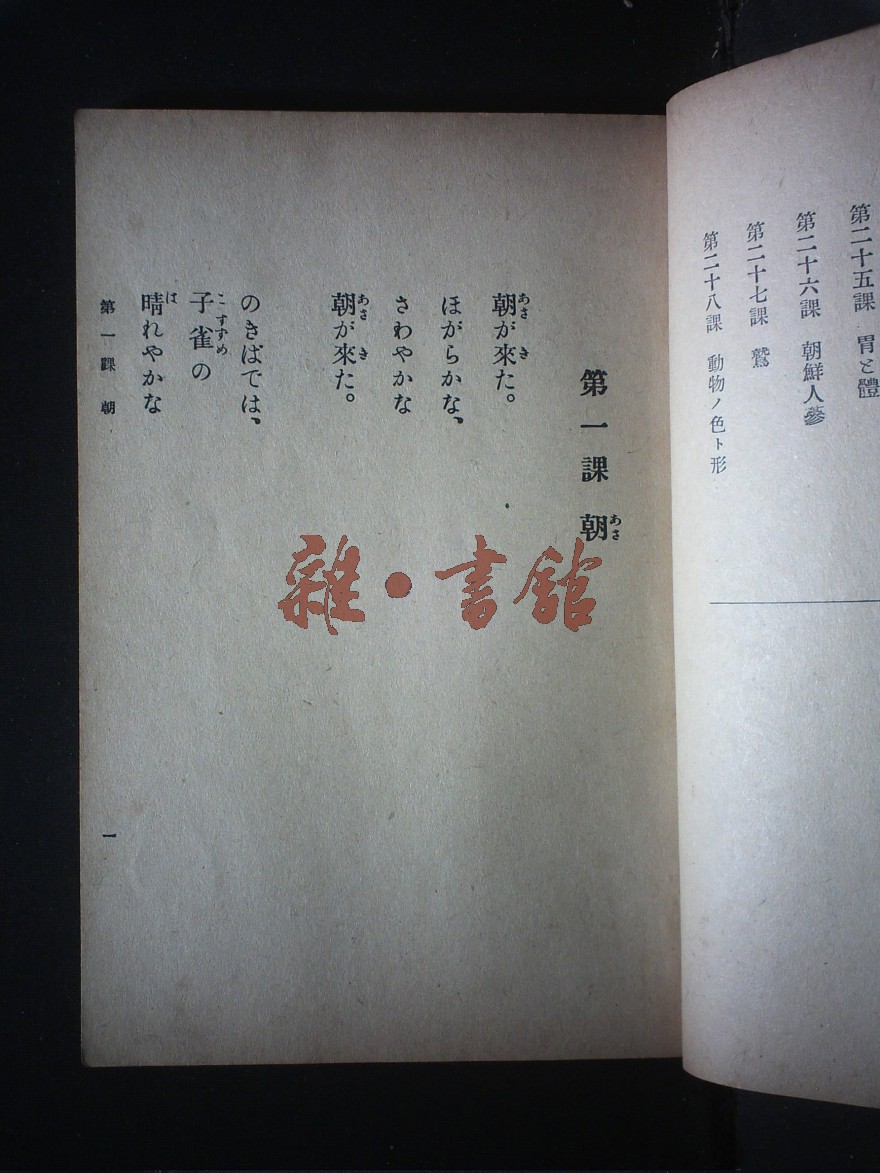 第二十五課 胃と體
第二十六課 朝鮮人蔘
第二十七課 鷲
第二十八課 動物ノ色ト形
第一課 朝
朝が來た。
ほがらかな、
さわやかな
朝が來た。
のきばでは、
子雀の
晴れやかな
第一課 朝
一
雜・書館